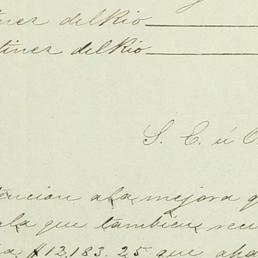 tinez del Rio
tinez del Rio
S. E. ú O
tencion a la mejora q
ala que tambien reci
$13,183.25 que apa